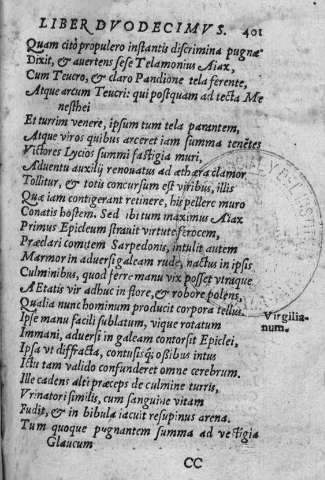 LIBER DVODECIMVS. 401
Quam citò propulero instantis discrimina pugnæ
Dixit, & auertens sese Telamonius Aiax,
Cum Teucro, & claro Pandione tela ferente,
Atque arcum Teucri: qui postquam ad tecta Me
nesthei
Et turrim venere, ipsum tum tela parantem,
Atque viros quibus arceret iam summa tenẽtes
Victores Lycios summi fastigia muri,
Aduentu auxilij renouatus ad æthæra clamor
Tollitur, & totis concursum est viribus, illis
Quæ iam contigerant retinere, his pellere muro
Conatis hostem. Sed ibi tum maximus Aiax
Primus Epicleum strauit virtute ferocem,
Præclari comitem Sarpedonis, intulit autem
Marmor in aduersi galeam rude, nactus in ipsis
Culminibus, quod ferre manu vix posset vtraque
AEtatis vir adhuc in flore, & robore pollens,
Qualia nunc hominum producit corpora tellus.
Virgilia-
num.
Ipse manu facili sublatum, vique rotatum
Immani, aduersi in galeam contorsit Epiclei,
Ipsa vt diffracta, contusisq; oßibus intus
Ictu tam valido confunderet omne cerebrum.
Ille cadens alti præceps de culmine turris,
Vrinatori similis, cum sanguine vitam
Fudit, & in bibula iacuit resupinus arena.
Tum quoque pugnantem summa ad vestigia
Glaucum
CC